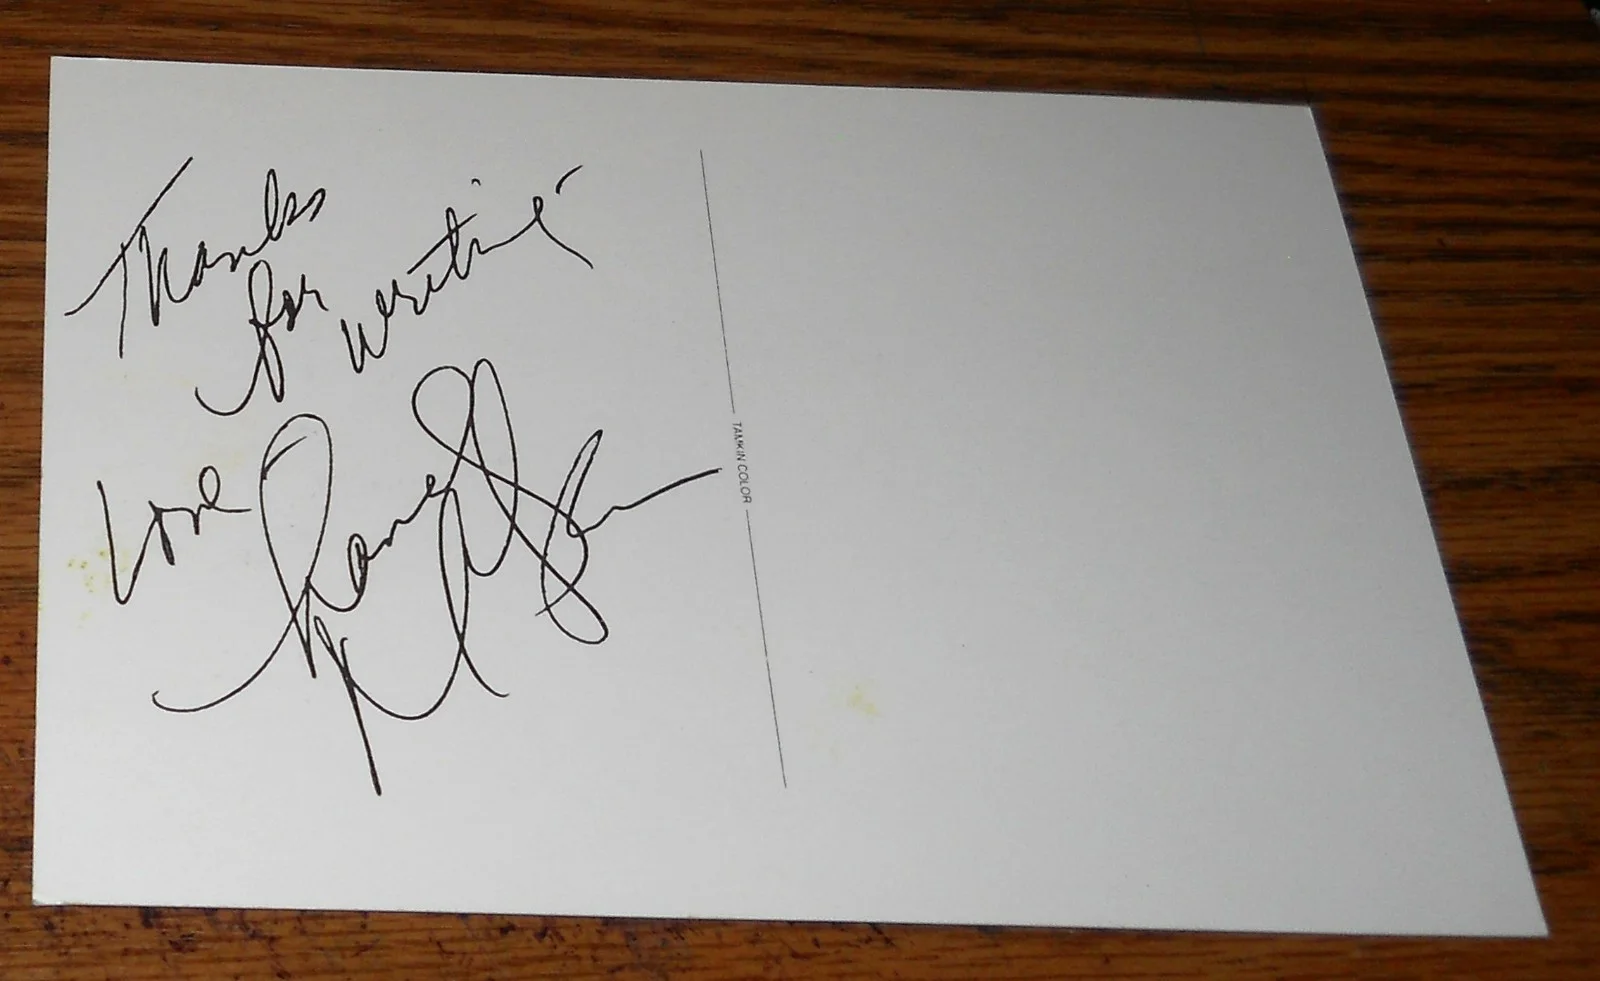 Thanks
for writing
Love
TAMKIN COLOR